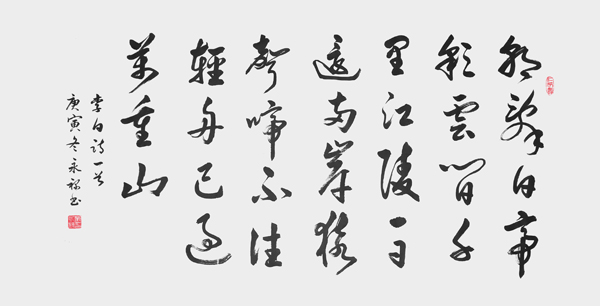 朝辭白帝
彩雲間千
里江陵一日
還两岸猿
聲啼不住
輕舟已過
萬重山
李白詩一首
庚寅冬永书